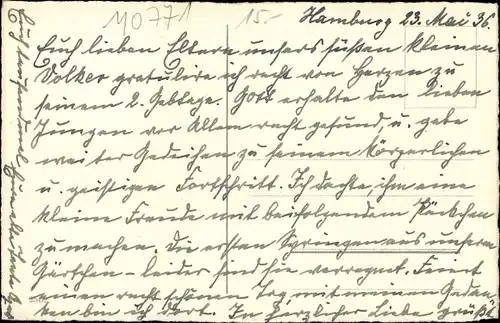 M0771
15.-
Hamburg 23. Mai 36.
Euch lieben Eltern unsers süßen kleinen
Volker gratulire ich recht von Herzen zu
seinem 2. Gebtage. Gott erhalte den lieben
Jungen vor Allem recht gesund, u. gebe
weiter Gedeihen zu seinem körperlichen
u. geistigen Fortschritt. Ich dachte, ihm eine
kleine Freude mit beifolgendem Päckchen
zu machen. Die ersten Syringen aus unserm
Gärtchen - leider sind sie verregnet. Feiert
einen recht schönen Tag, mit meinen Gedan-
ken bin ich dort. In herzlicher Liebe grüßt
Euch tausendmal Eure alte Tante